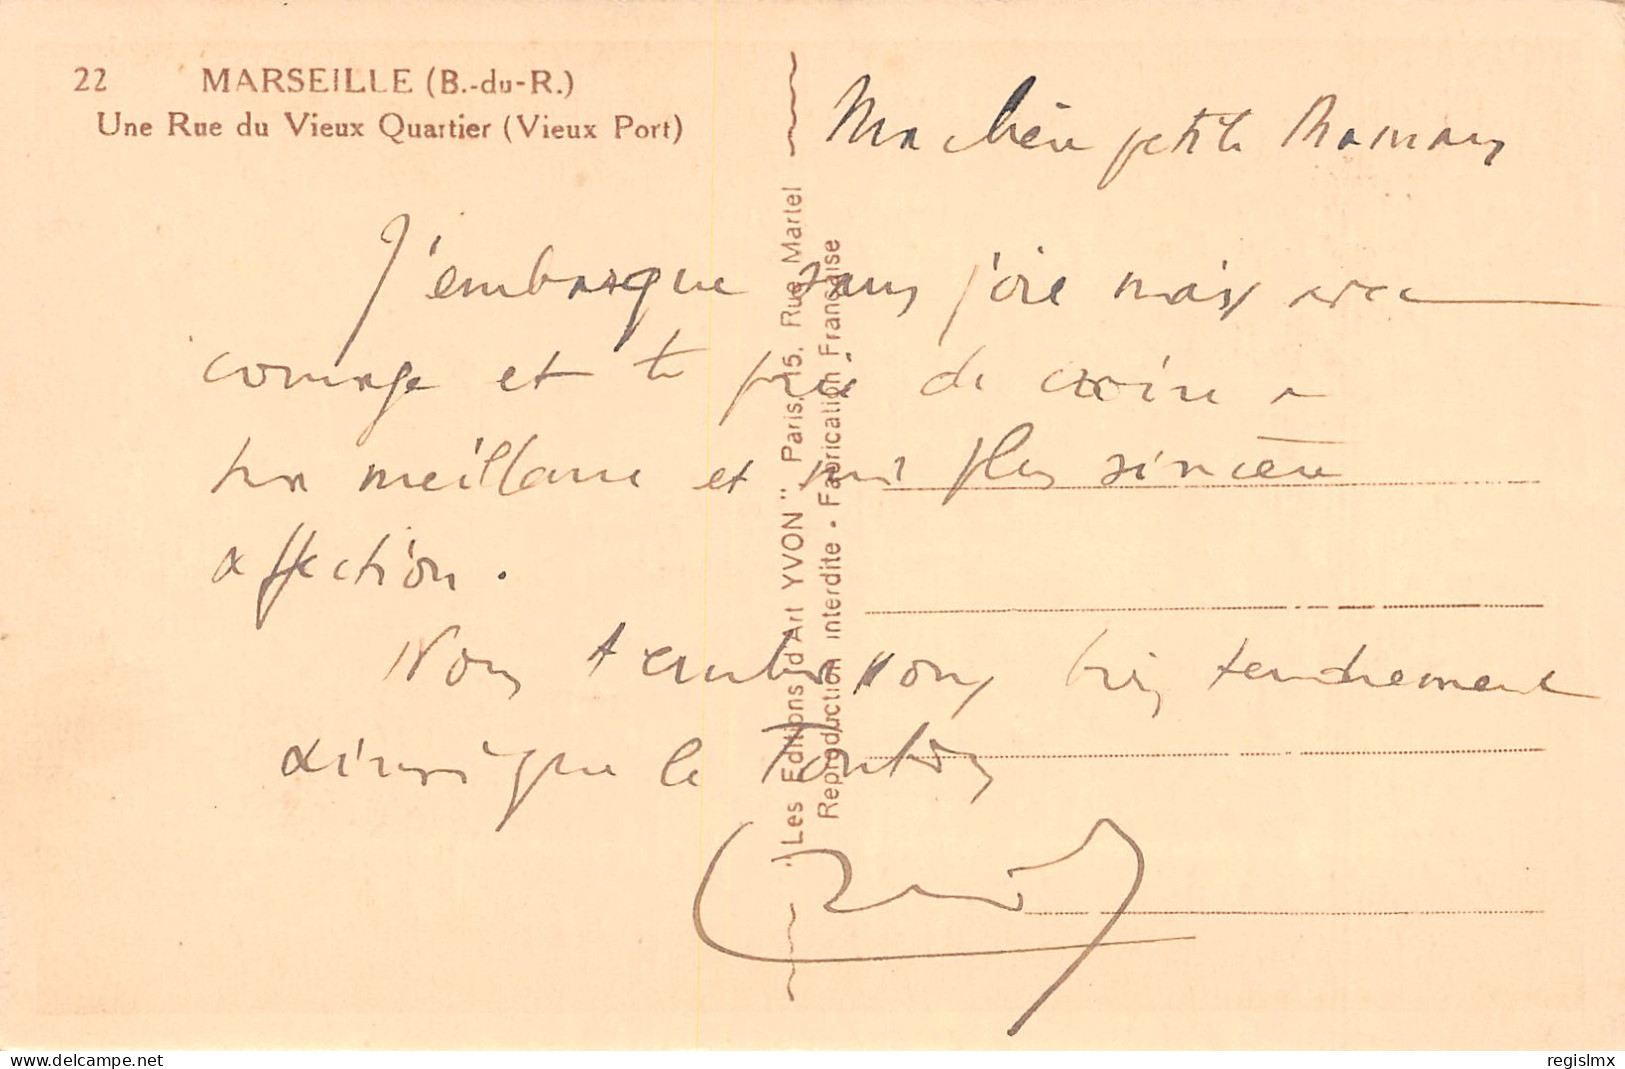 22 MARSEILLE (B.-du-R.)
Une Rue du Vieux Quartier (Vieux Port)
Ma chère petite Maman
J'embarque sans joie mais avec
courage et te prie de croire à
ma meilleure et ma plus sincère
affection.
Nous t'embrassons bien tendrement
ainsi que le Tonton
René
"Les Editions d'Art YVON" Paris, 15, Rue Martel
Reproduction interdite - Fabrication Française
regislmx